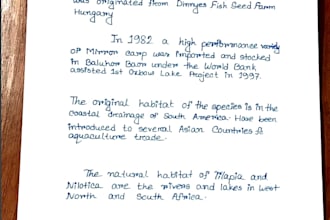 was originated from Dinnyes Fish Seed Farm
Hungary
In 1982 a high performance variety
of Mirror carp was imported and stocked
in Baluhar Baor under the World Bank
assisted 1st Oxbow Lake Project in 1997.
The original habitat of the species is in the
coastal drainage of South America. Have been
introduced to several Asian Countries
aquaculture trade.
The natural habitat of Tilapia and
Nilotica are the rivers and lakes in West
North and South Africa.